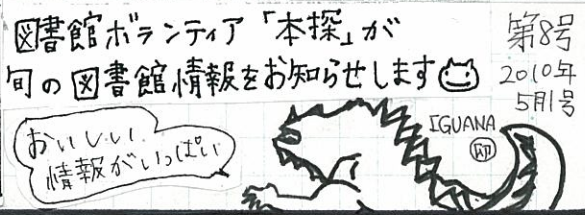 図書館ボランティア「本探」が
旬の図書館情報をお知らせします
第8号
2010年
5月1号
おいしい
情報がいっぱい
IGUANA
印